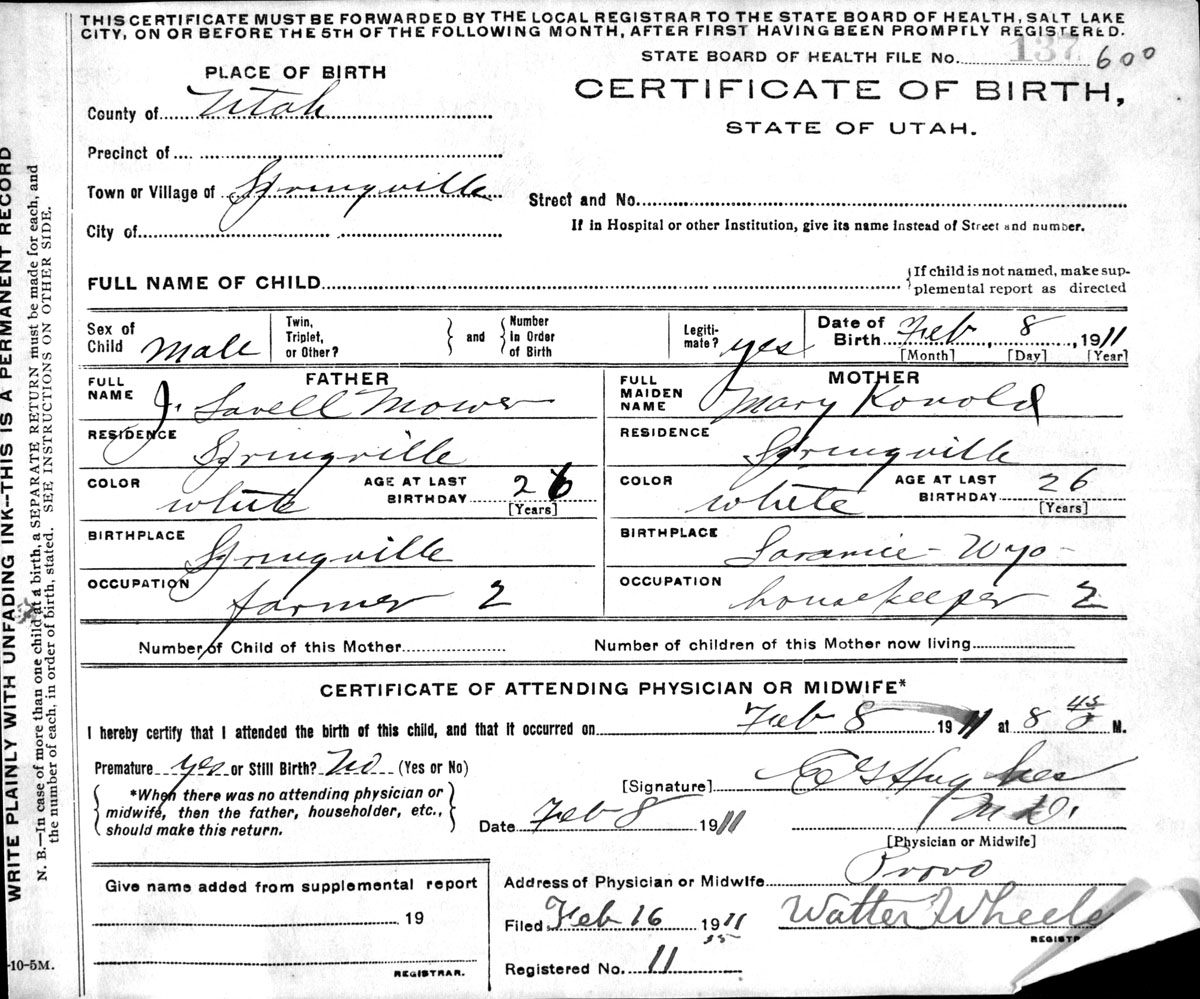 THIS CERTIFICATE MUST BE FORWARDED BY THE LOCAL REGISTRAR TO THE STATE BOARD OF HEALTH, SALT LAKE
CITY, ON OR BEFORE THE 5TH OF THE FOLLOWING MONTH, AFTER FIRST HAVING BEEN PROMPTLY REGISTERED.
STATE BOARD OF HEALTH FILE No. 137 600
PLACE OF BIRTH
CERTIFICATE OF BIRTH,
STATE OF UTAH.
County of Utah
Precinct of
Town or Village of Springville
Street and No.
City of
If in Hospital or other Institution, give its name instead of Street and number.
FULL NAME OF CHILD
If child is not named, make sup-
plemental report as directed
Sex of Child Male
Twin, Triplet, or Other?
and
Number In Order of Birth
Legiti-mate? yes
Date of Birth Feb, 8, 1911
[Month] [Day] [Year]
FATHER
FULL NAME J. Lavell Mower
RESIDENCE Springville
COLOR white AGE AT LAST BIRTHDAY 26
[Years]
BIRTHPLACE Springville
OCCUPATION farmer 2
MOTHER
FULL MAIDEN NAME Mary Konold
RESIDENCE Springville
COLOR white AGE AT LAST BIRTHDAY 26
[Years]
BIRTHPLACE Laramie - Wyo -
OCCUPATION housekeeper 2
Number of Child of this Mother
Number of children of this Mother now living
CERTIFICATE OF ATTENDING PHYSICIAN OR MIDWIFE*
I hereby certify that I attended the birth of this child, and that it occurred on Feb 8 1911 at 8 45 M.
Premature yes or Still Birth? No (Yes or No)
*When there was no attending physician or
midwife, then the father, householder, etc.,
should make this return.
[Signature] Hughes
M.D.
Date Feb 8 1911
[Physician or Midwife]
Address of Physician or Midwife Provo
Give name added from supplemental report
19
REGISTRAR.
Filed Feb 16 1911
Walter Wheele
REGISTR
Registered No. 11
-10-5M.
WRITE PLAINLY WITH UNFADING INK--THIS IS A PERMANENT RECORD
N. B.—In case of more than one child at a birth, a SEPARATE RETURN must be made for each, and
the number of each, in order of birth, stated. SEE INSTRUCTIONS ON OTHER SIDE.